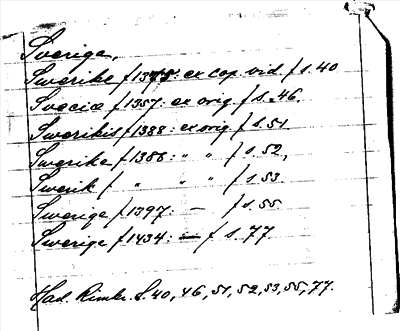 Sverige,
Swerike f 1375: ex cop. vid. f s. 40
Svecia f 1357: ex orig. f s. 46.
Swerikis f 1388: ex orig f s. 51
Swerike f 1388: " " f s. 52,
Swerik f " " " f s. 53.
Swerige f 1397: — f s. 55
Swerige f 1434: — f s. 77.
Had. Rimbr. S. 40, 46, 51, 52, 53, 55, 77.